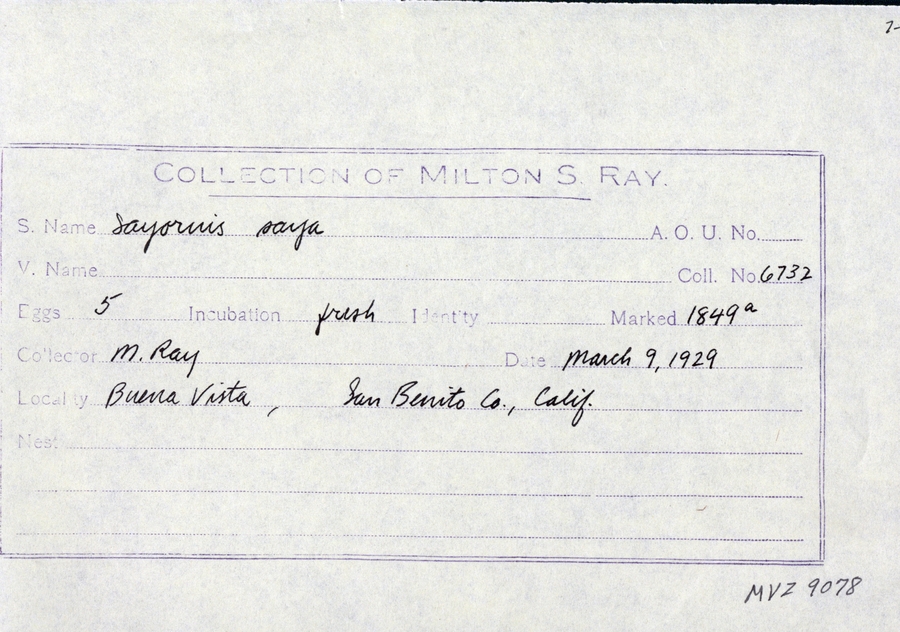 COLLECTION OF MILTON S. RAY.
S. Name Sayornis saya A. O. U. No.
V. Name Coll. No. 6732
Eggs 5 Incubation fresh Identity Marked 1849a
Collector M. Ray Date March 9, 1929
Locality Buena Vista, San Benito Co., Calif.
Nest
MVZ 9078